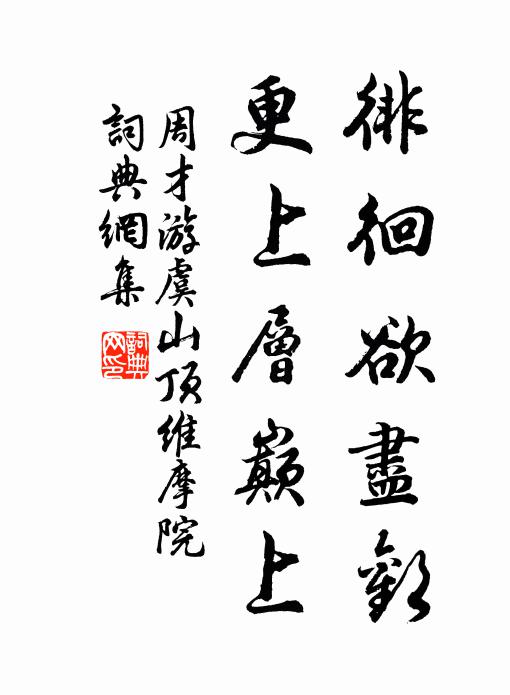 徘徊欲盡歡
更上層巔上
周才游虞山頂維摩院
詞典網集
詞典网印